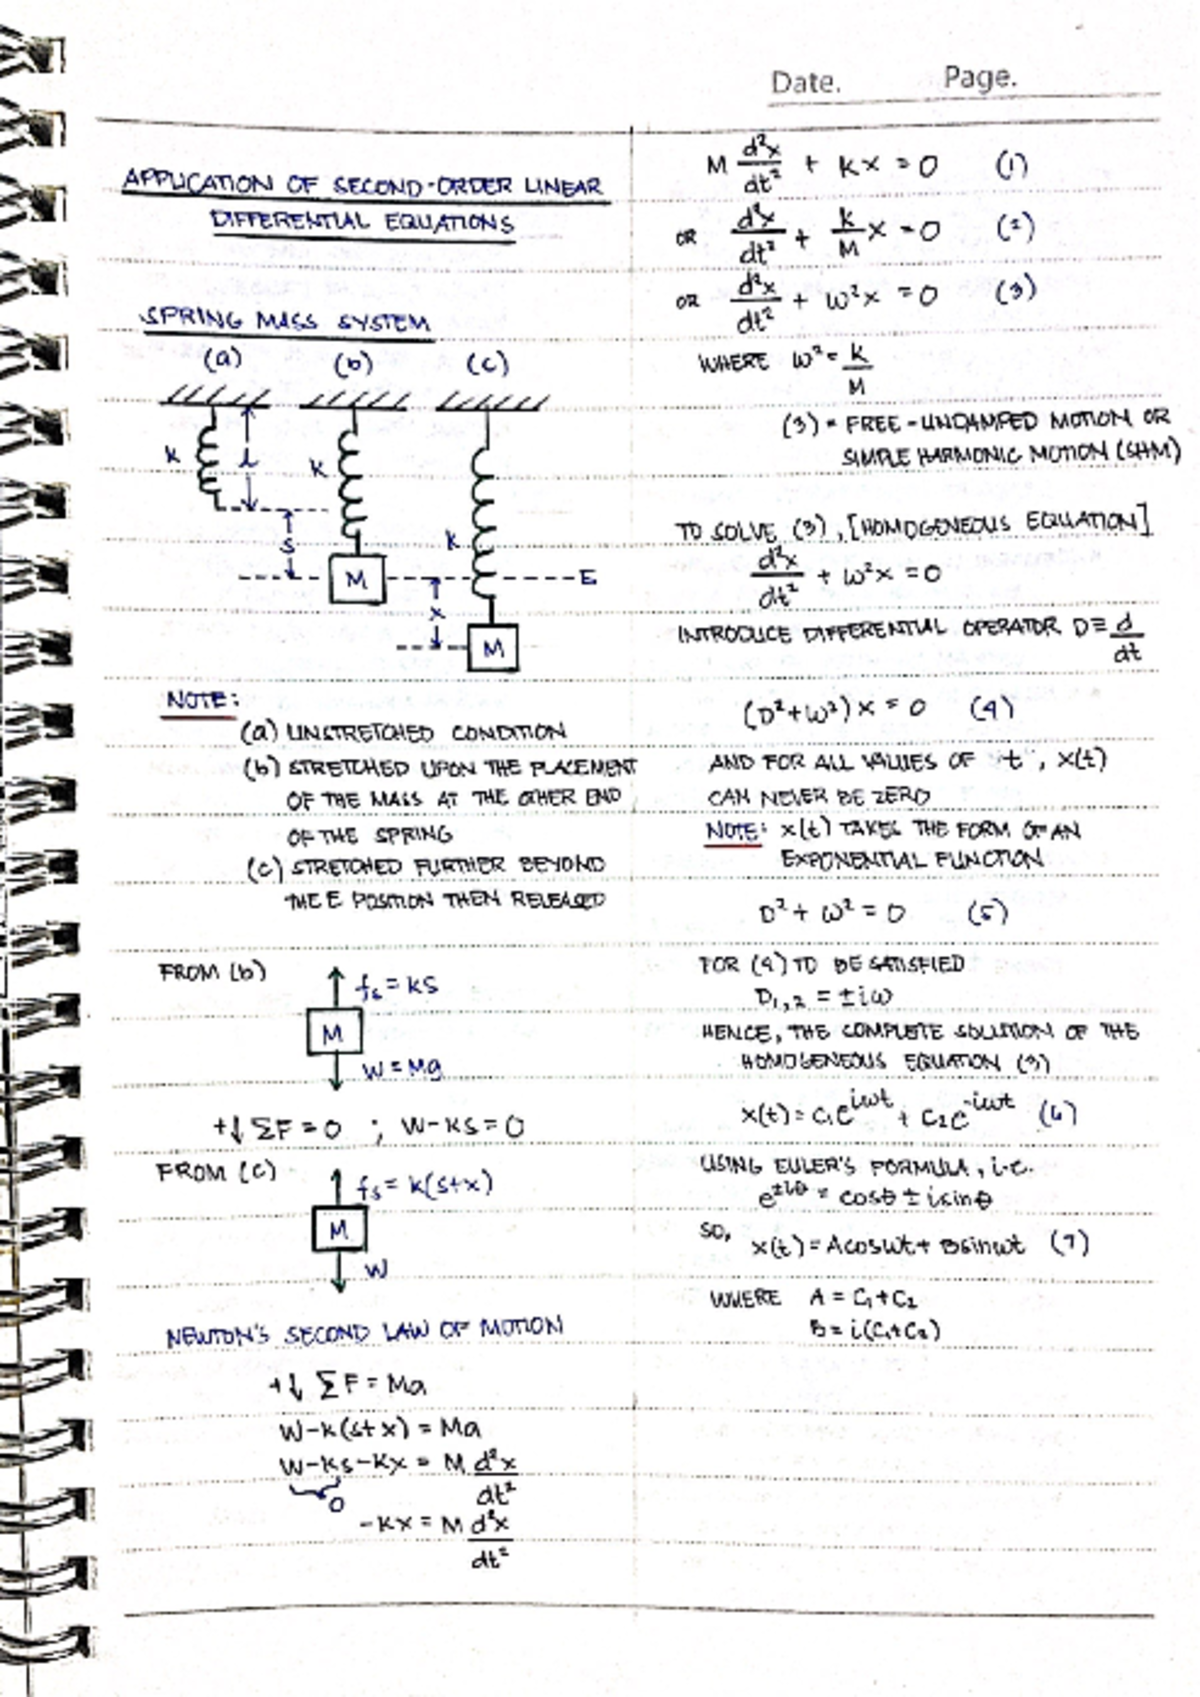 Date. Page.
APPLICATION OF SECOND-ORDER LINEAR
DIFFERENTIAL EQUATIONS
SPRING MASS SYSTEM
(a) (b) (c)
k l k
s k
M E
x
M
NOTE:
(a) UNSTRETCHED CONDITION
(b) STRETCHED UPON THE PLACEMENT
OF THE MASS AT THE OTHER END
OF THE SPRING
(c) STRETCHED FURTHER BEYOND
THE E POSITION THEN RELEASED
FROM (b)
fs = ks
M
W = Mg
+↓ ΣF = 0 ; W-ks = 0
FROM (c)
fs = k(s+x)
M
W
NEWTON'S SECOND LAW OF MOTION
+↓ ΣF = Ma
W-k(s+x) = Ma
W-ks-kx = M d²x/dt²
0
-kx = M d²x/dt²
M d²x/dt² + kx = 0 (1)
OR d²x/dt² + k/M x = 0 (2)
OR d²x/dt² + ω²x = 0 (3)
WHERE ω² = k/M
(3) = FREE-UNDAMPED MOTION OR
SIMPLE HARMONIC MOTION (SHM)
TO SOLVE (3), [HOMOGENEOUS EQUATION]
d²x/dt² + ω²x = 0
INTRODUCE DIFFERENTIAL OPERATOR D ≡ d/dt
(D²+ω²)x = 0 (4)
AND FOR ALL VALUES OF "t", x(t)
CAN NEVER BE ZERO
NOTE: x(t) TAKES THE FORM OF AN
EXPONENTIAL FUNCTION
D² + ω² = 0 (5)
FOR (4) TO BE SATISFIED
D₁,₂ = ±iω
HENCE, THE COMPLETE SOLUTION OF THE
HOMOGENEOUS EQUATION (3)
x(t) = C₁e^iωt + C₂e^-iωt (6)
USING EULER'S FORMULA, i.e.
e^±iθ = cosθ ± isinθ
SO, x(t) = Acosωt + Bsinωt (7)
WHERE A = C₁+C₂
B = i(C₁+C₂)